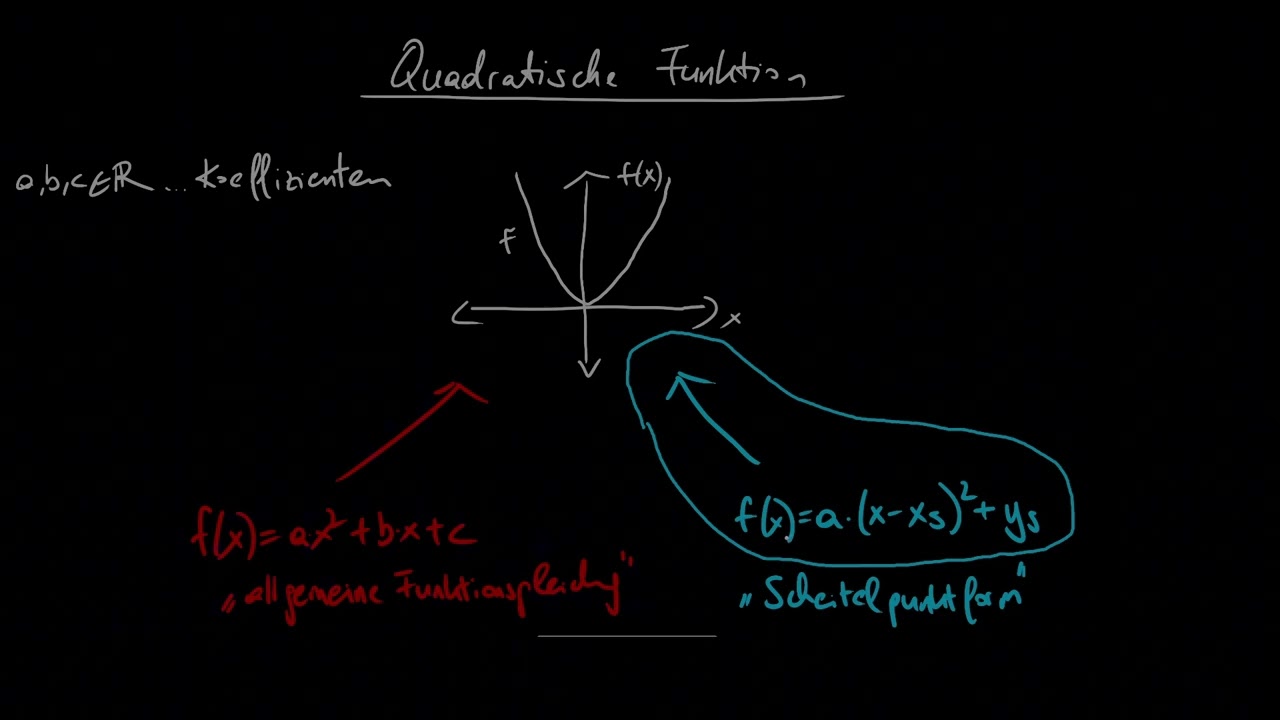 Quadratische Funktion
a,b,c∈ℝ ... Koeffizienten
f(x)
f
x
f(x)=a·(x-xs)²+ys
f(x)=ax²+b·x+c
„allgemeine Funktionsgleichung"
„Scheitelpunktform"